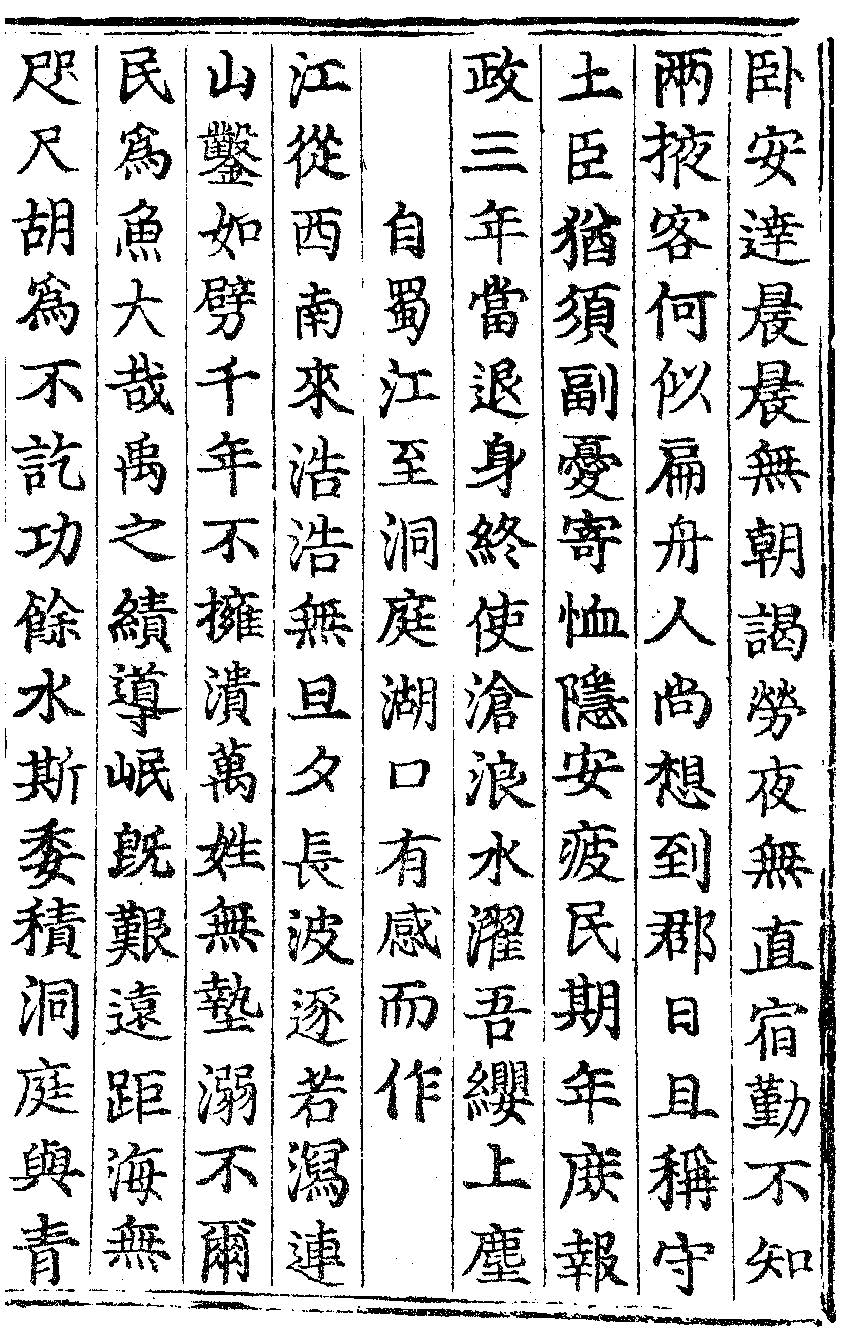 卧安達晨晨無朝謁勞夜無直宿勤不知
兩掖客何似扁舟人尚想到郡日且稱守
土臣猶須副憂寄恤隱安疲民期年庻報
政三年當退身終使滄浪水濯吾纓上塵
自蜀江至洞庭湖口有感而作
江從西南來浩浩無旦夕長波逐若瀉連
山鑿如劈千年不擁潰萬姓無墊溺不爾
民爲魚大哉禹之績導岷旣艱遠距海無
咫尺胡爲不訖功餘水斯委積洞庭與青